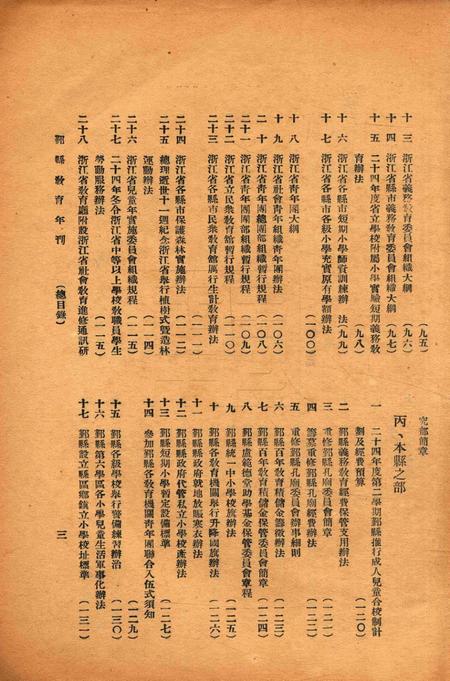 十三　浙江省義務教育委員會組織大綱　（九五）
十四　浙江省縣市義務教育委員會組織大綱　（九六）
十五　二十四年度省立學校附屬小學實驗短期義務教
育辦法　（九七）
十六　浙江省各縣市短期小學師資訓練辦　法（九八）
十七　浙江省各縣市各級小學充實原有學額辦法
（一〇〇）
十八　浙江省青年團大綱
十九　浙江省社會青年組織青年團辦法
（一〇六）
二十　浙江省青年團總團部組織暫行規程
（一〇八）
二十一　浙江省青年團團部組織暫行規程
（一〇九）
二十二　浙江省立民衆教育館暫行規程　（一一〇）
二十三　浙江省各縣市民衆教育館厲行生計教育辦法
二十四　浙江省各縣市保護森林實施辦法
（一一二）
二十五　總理逝世十一週紀念浙江省舉行植樹式暨造林
運動辦法　（一一四）
二十六　浙江省兒童年實施委員會組織規程
（一一五）
二十七　二十四年冬令浙江省中等以上學校教職員學生
勞動服務辦法　（一一五）
二十八　浙江省教育廳附設浙江省社會教育進修通訊研
鄞縣教育年刊　（總目錄）
究部簡章
丙、本縣之部
一　二十四年度第二學期鄞縣推行成人兒童合校制計
劃及經費預算　（一二〇）
二　鄞縣義務教育經費保管支用辦法
三　重修鄞縣孔廟委員會簡章　（一二一）
四　籌募重修鄞縣孔廟經費辦法　（一二二）
五　重修鄞縣孔廟委員會辦事細則
六　鄞縣百年教育積儲金籌徵辦法　（一二三）
七　鄞縣百年教育積儲金保管委員會簡章
八　鄞縣盧範德堂助學基金保管委員會章程　（一二四）
九　鄞縣統一中小學校旗辦法　（一二五）
十　鄞縣各教育機關舉行升降國旗辦法
十一　鄞縣縣政府就地放賑寒衣辦法　（一二六）
十二　鄞縣縣政府代管私立小學校產辦法
十三　鄞縣短期小學暫定設備標準　（一二七）
十四　參加鄞縣各教育機關青年團聯合入伍式須知
十五　鄞縣各級學校舉行警備練習辦治　（一二九）
十六　鄞縣第六學區各小學兒童生活軍事化辦法　（一三〇）
十七　鄞縣設立縣區鄉鎮立小學校址標準　（一三一）
三